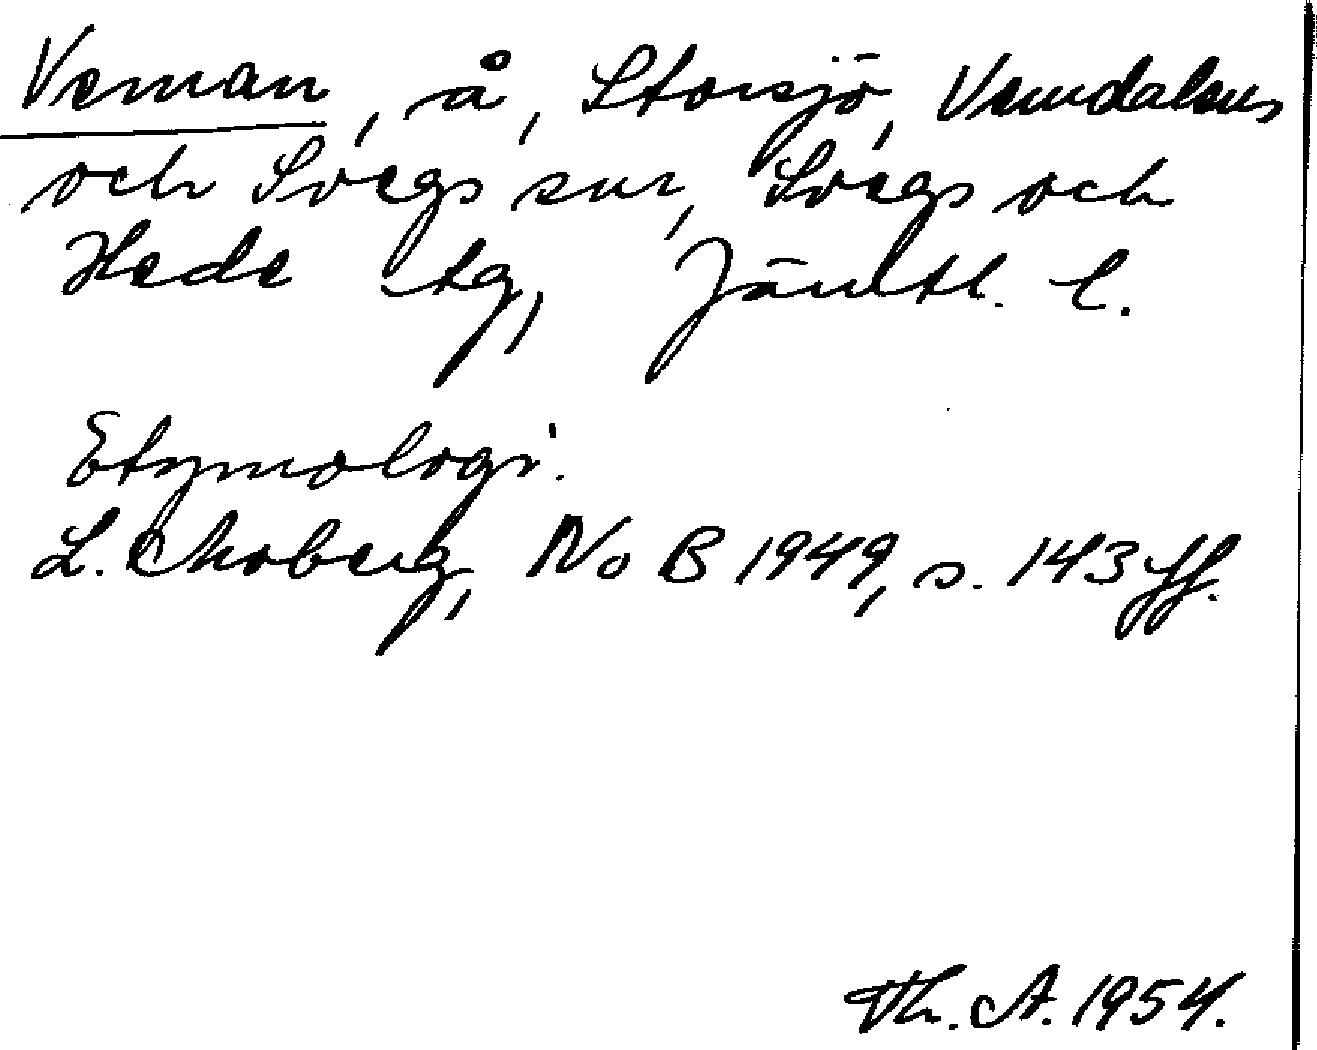 Veman, å, Storsjö, Vemdalens
och Svegs snr, Svegs och
Hede tg, Jämtl. l.
Etymologi.
L. Moberg, NoB 1949, s. 143 ff.
Th. A. 1954.